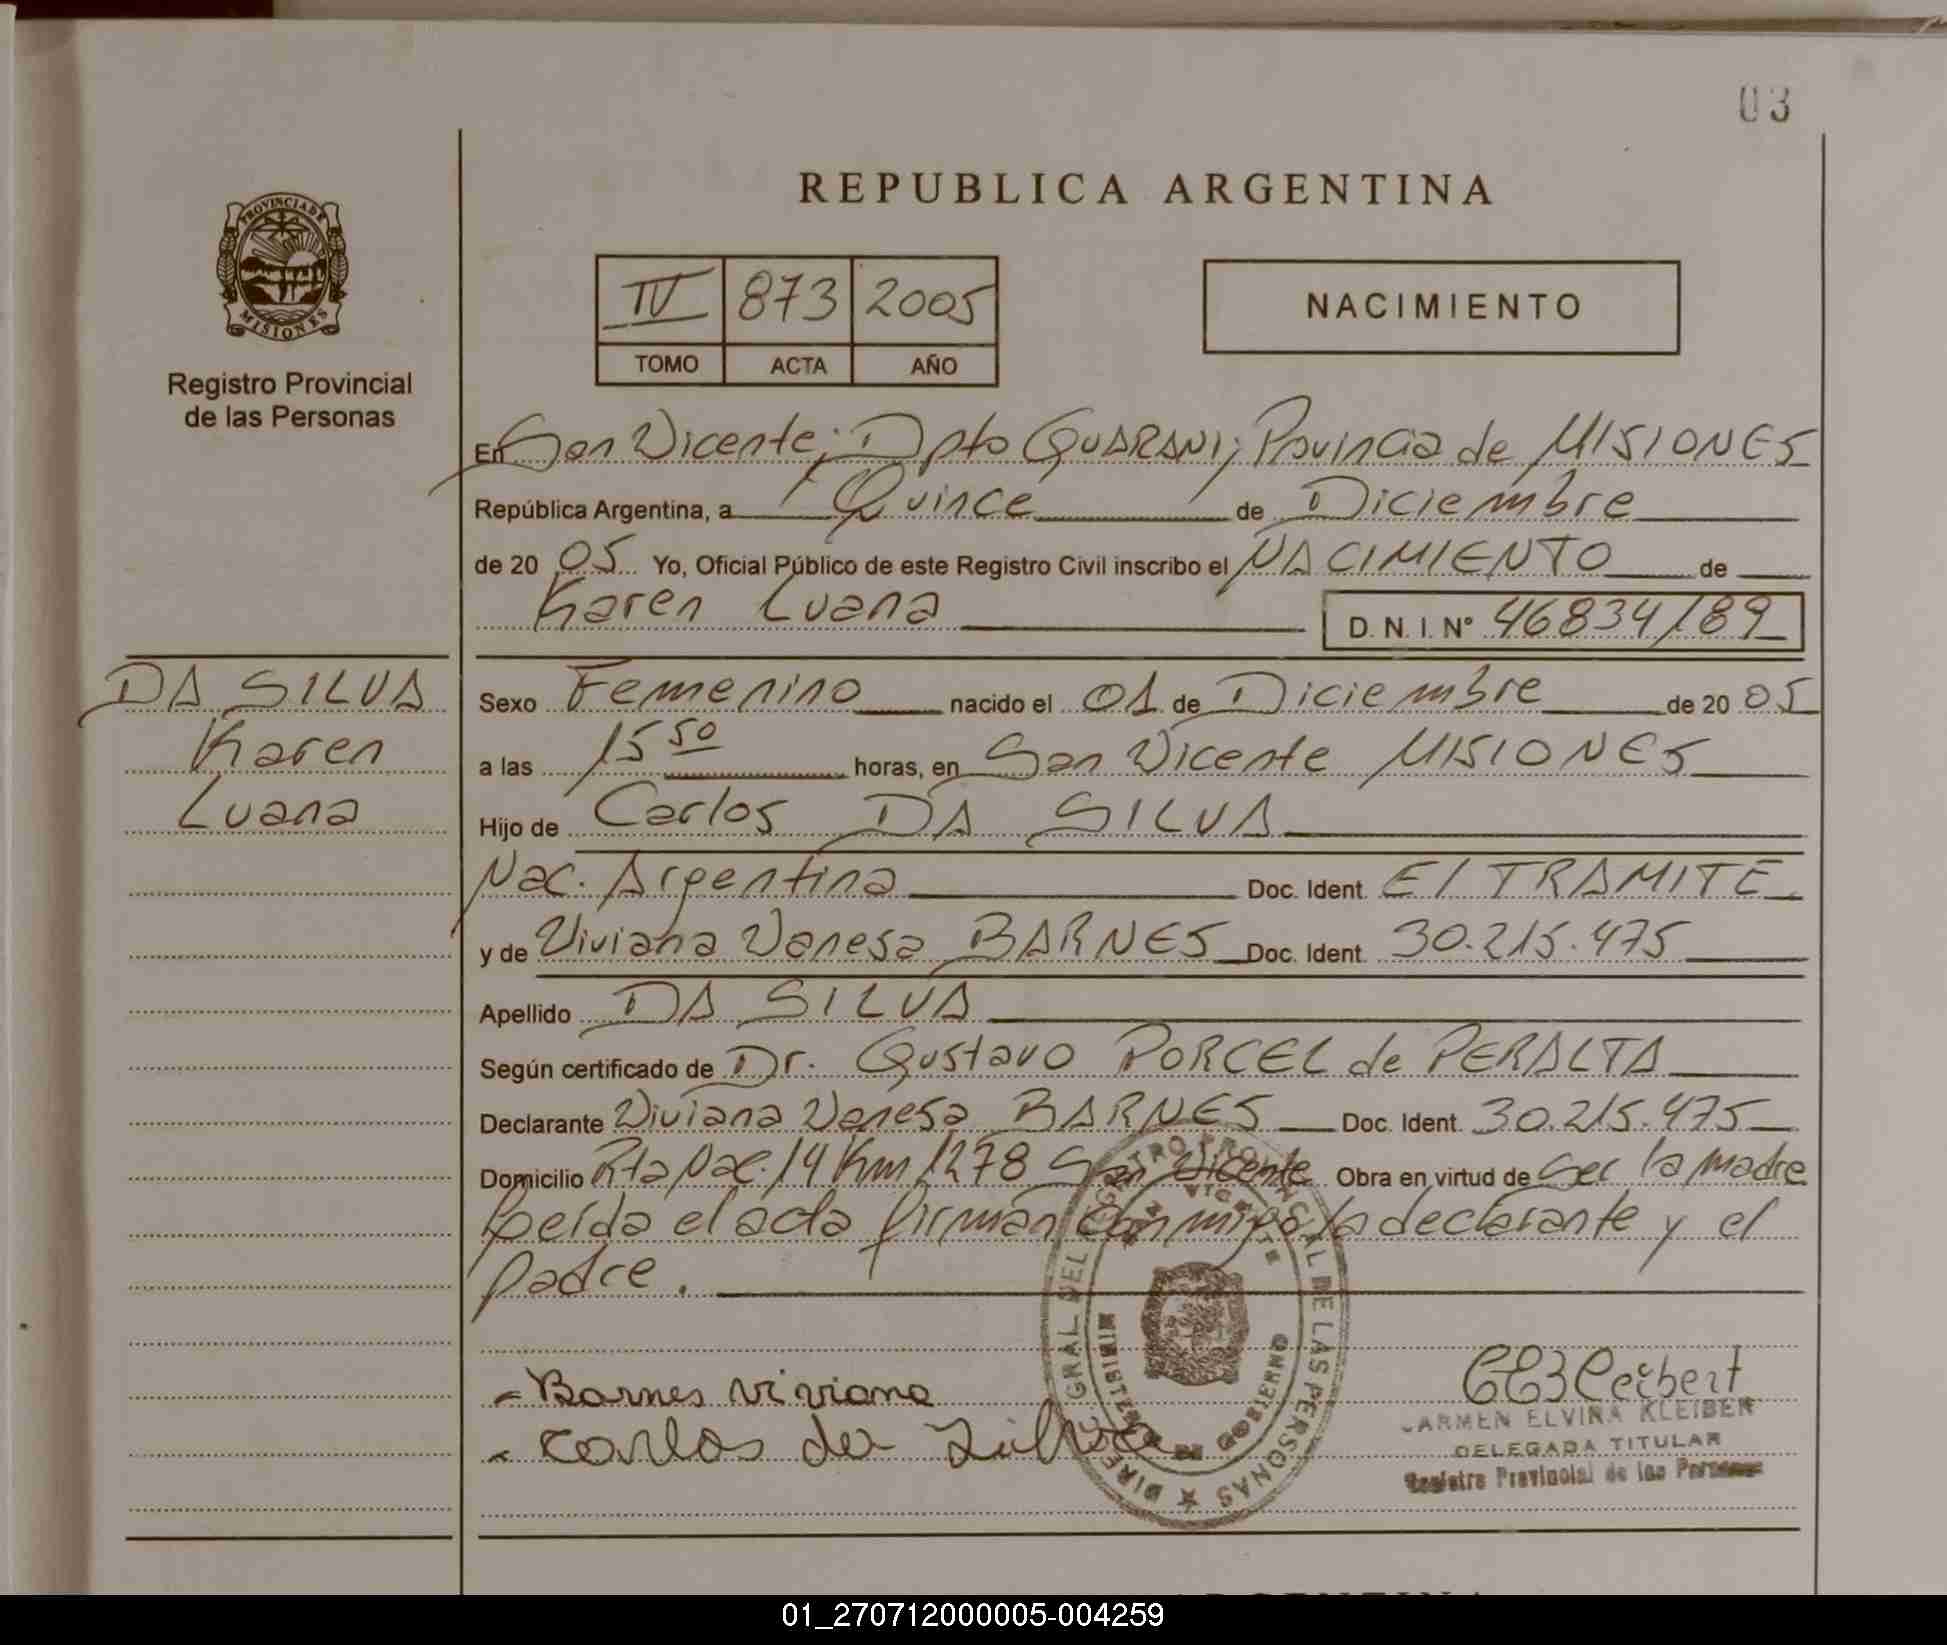 03
REPUBLICA ARGENTINA
PROVINCIA DE
MISIONES
Registro Provincial
de las Personas
IV 873 2005
TOMO ACTA AÑO
NACIMIENTO
En San Vicente; Dpto GUARANI; Provincia de MISIONES
República Argentina, a Quince de Diciembre
de 20 05 Yo, Oficial Público de este Registro Civil inscribo el NACIMIENTO de
Karen Luana D.N.I. N° 46834189
DA SILVA
Karen
Luana
Sexo Femenino nacido el 01 de Diciembre de 20 05
a las 15 50 horas, en San Vicente MISIONES
Hijo de Carlos DA SILVA
Nac. Argentina Doc. Ident. E/TRAMITE
y de Viviana Vanesa BARNES Doc. Ident. 30.215.475
Apellido DA SILVA
Según certificado de Dr. Gustavo PORCEL de PERALTA
Declarante Viviana Vanesa BARNES Doc. Ident. 30.215.475
Domicilio Rta Nac. 14 Km 1278 San Vicente Obra en virtud de ser la madre
leída el acta firman conmigo la declarante y el
padre.
DIREC. GRAL DEL REGISTRO PROVINCIAL DE LAS PERSONAS
SAN VICENTE
MINISTERIO DE GOBIERNO
- Barnes viviana
- Carlos da Silva
CARMEN ELVIRA KLEIBER
DELEGADA TITULAR
Registro Provincial de las Personas
01_270712000005-004259